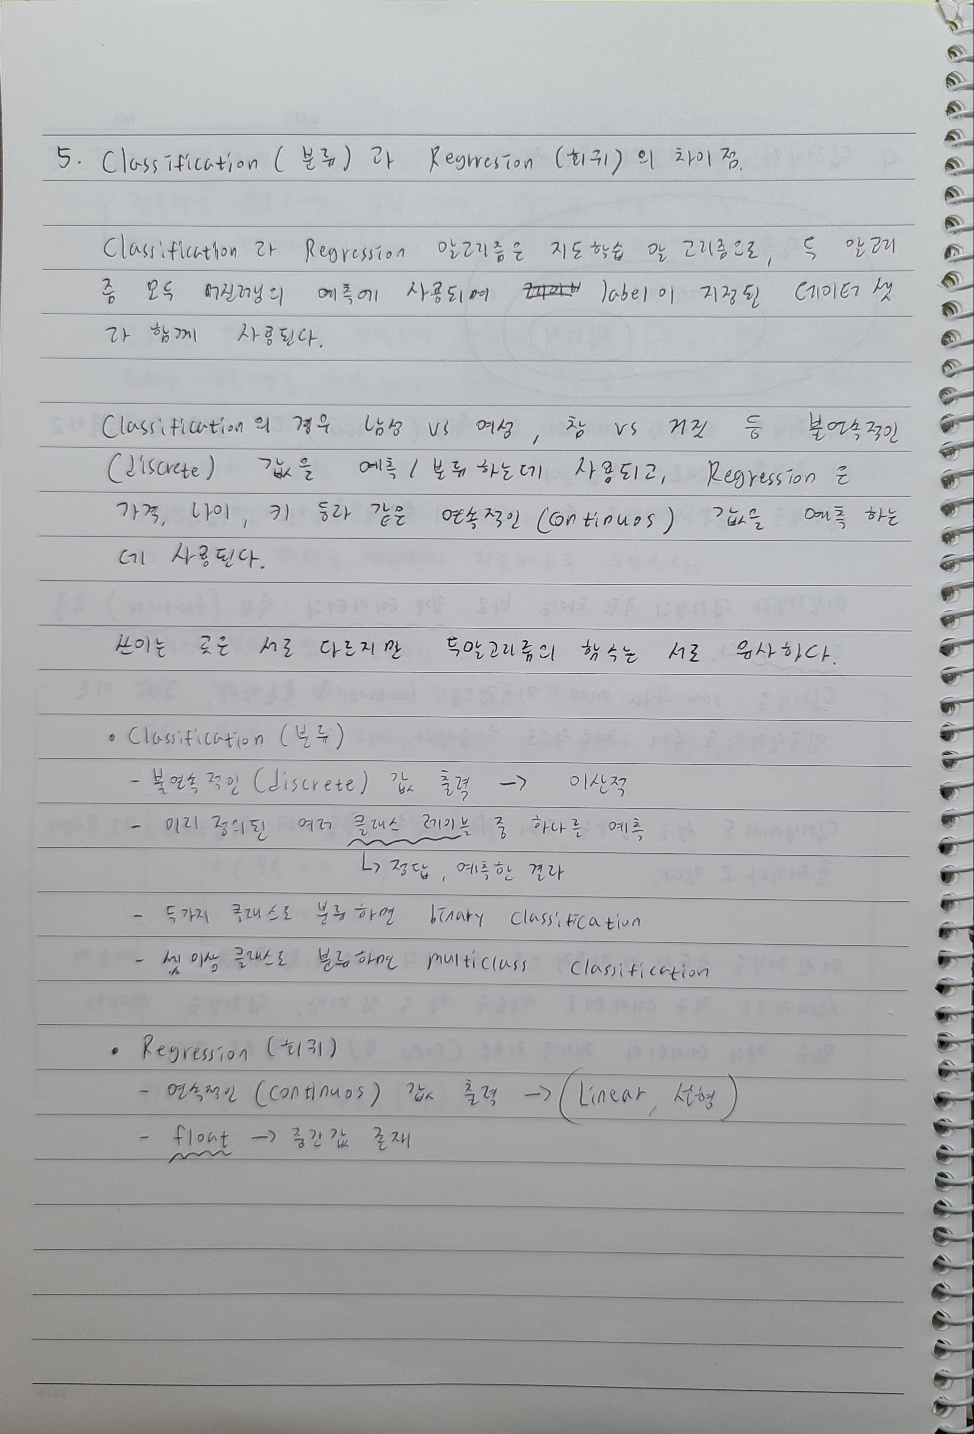 5. Classification (분류) 과 Regrresion (회귀) 의 차이점.
Classification 과 Regression 알고리즘은 지도학습 알고리즘으로, 두 알고리
즘 모두 머신러닝의 예측에 사용되며 label이 지정된 데이터 셋
과 함께 사용된다.
Classification의 경우 남성 vs 여성, 참 vs 거짓 등 불연속적인
(discrete) 값을 예측/분류하는데 사용되고, Regression 은
가격, 나이, 키 등과 같은 연속적인 (continuos) 값을 예측 하는
데 사용된다.
쓰이는 곳은 서로 다르지만 두알고리즘의 함수는 서로 유사하다.
• Classification (분류)
- 불연속적인 (discrete) 값 출력 → 이산적
- 미리 정의된 여러 클래스 레이블 중 하나를 예측
↳ 정답, 예측한 결과
- 두가지 클래스로 분류하면 binary classification
- 셋 이상 클래스로 분류하면 multiclass classification
• Regression (회귀)
- 연속적인 (continuos) 값 출력 → (Linear, 선형)
- float → 중간값 존재